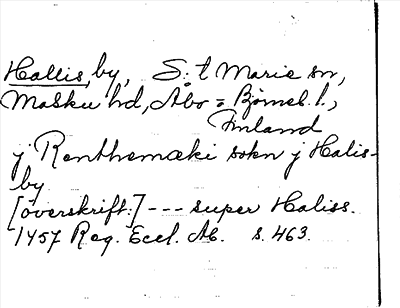 Hallis, by, S:t Marie sn,
Masku hd, Åbo = Björneb. l.,
Finland
j Renthemæki sokn j Halis-
by
[överskrift:] --- super Haliss.
1457 Reg. Eccl. Ab. s. 463.